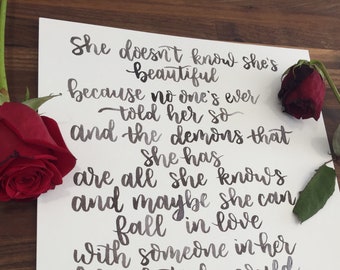 She doesn't know she's
beautiful
because no one's ever
told her so
and the demons that
she has
are all she knows
and maybe she can
fall in love
with someone in her